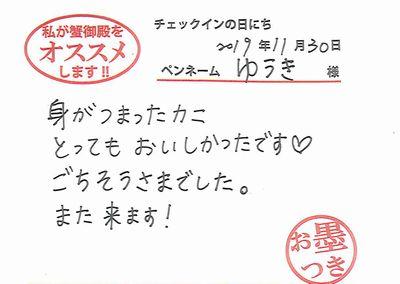 私が蟹御殿を
オススメ
します!!
チェックインの日にち
2019年11月30日
ペンネーム ゆうき 様
身がつまったカニ
とっても おいしかったです♡
ごちそうさまでした。
また来ます!
お墨
つき